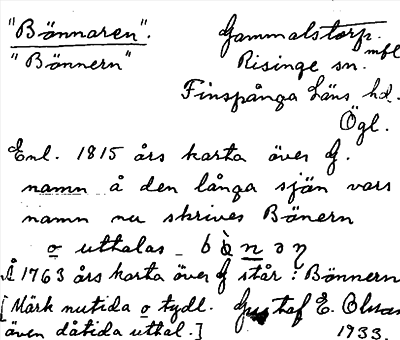 "Bönnaren".
"Bönnern"
Gammalstorp. mfl
Risinge sn.
Finspånga Läns hd.
Ögl.
Enl. 1815 års karta över G.
namn å den långa sjön vars
namn nu skrives Bönern
o uttalas - bò̤nəη
Å 1763 års karta över G står: Bönnern
[Märk nutida o tydl. Gustaf E. Olsson
även dåtida uttal.] 1933.